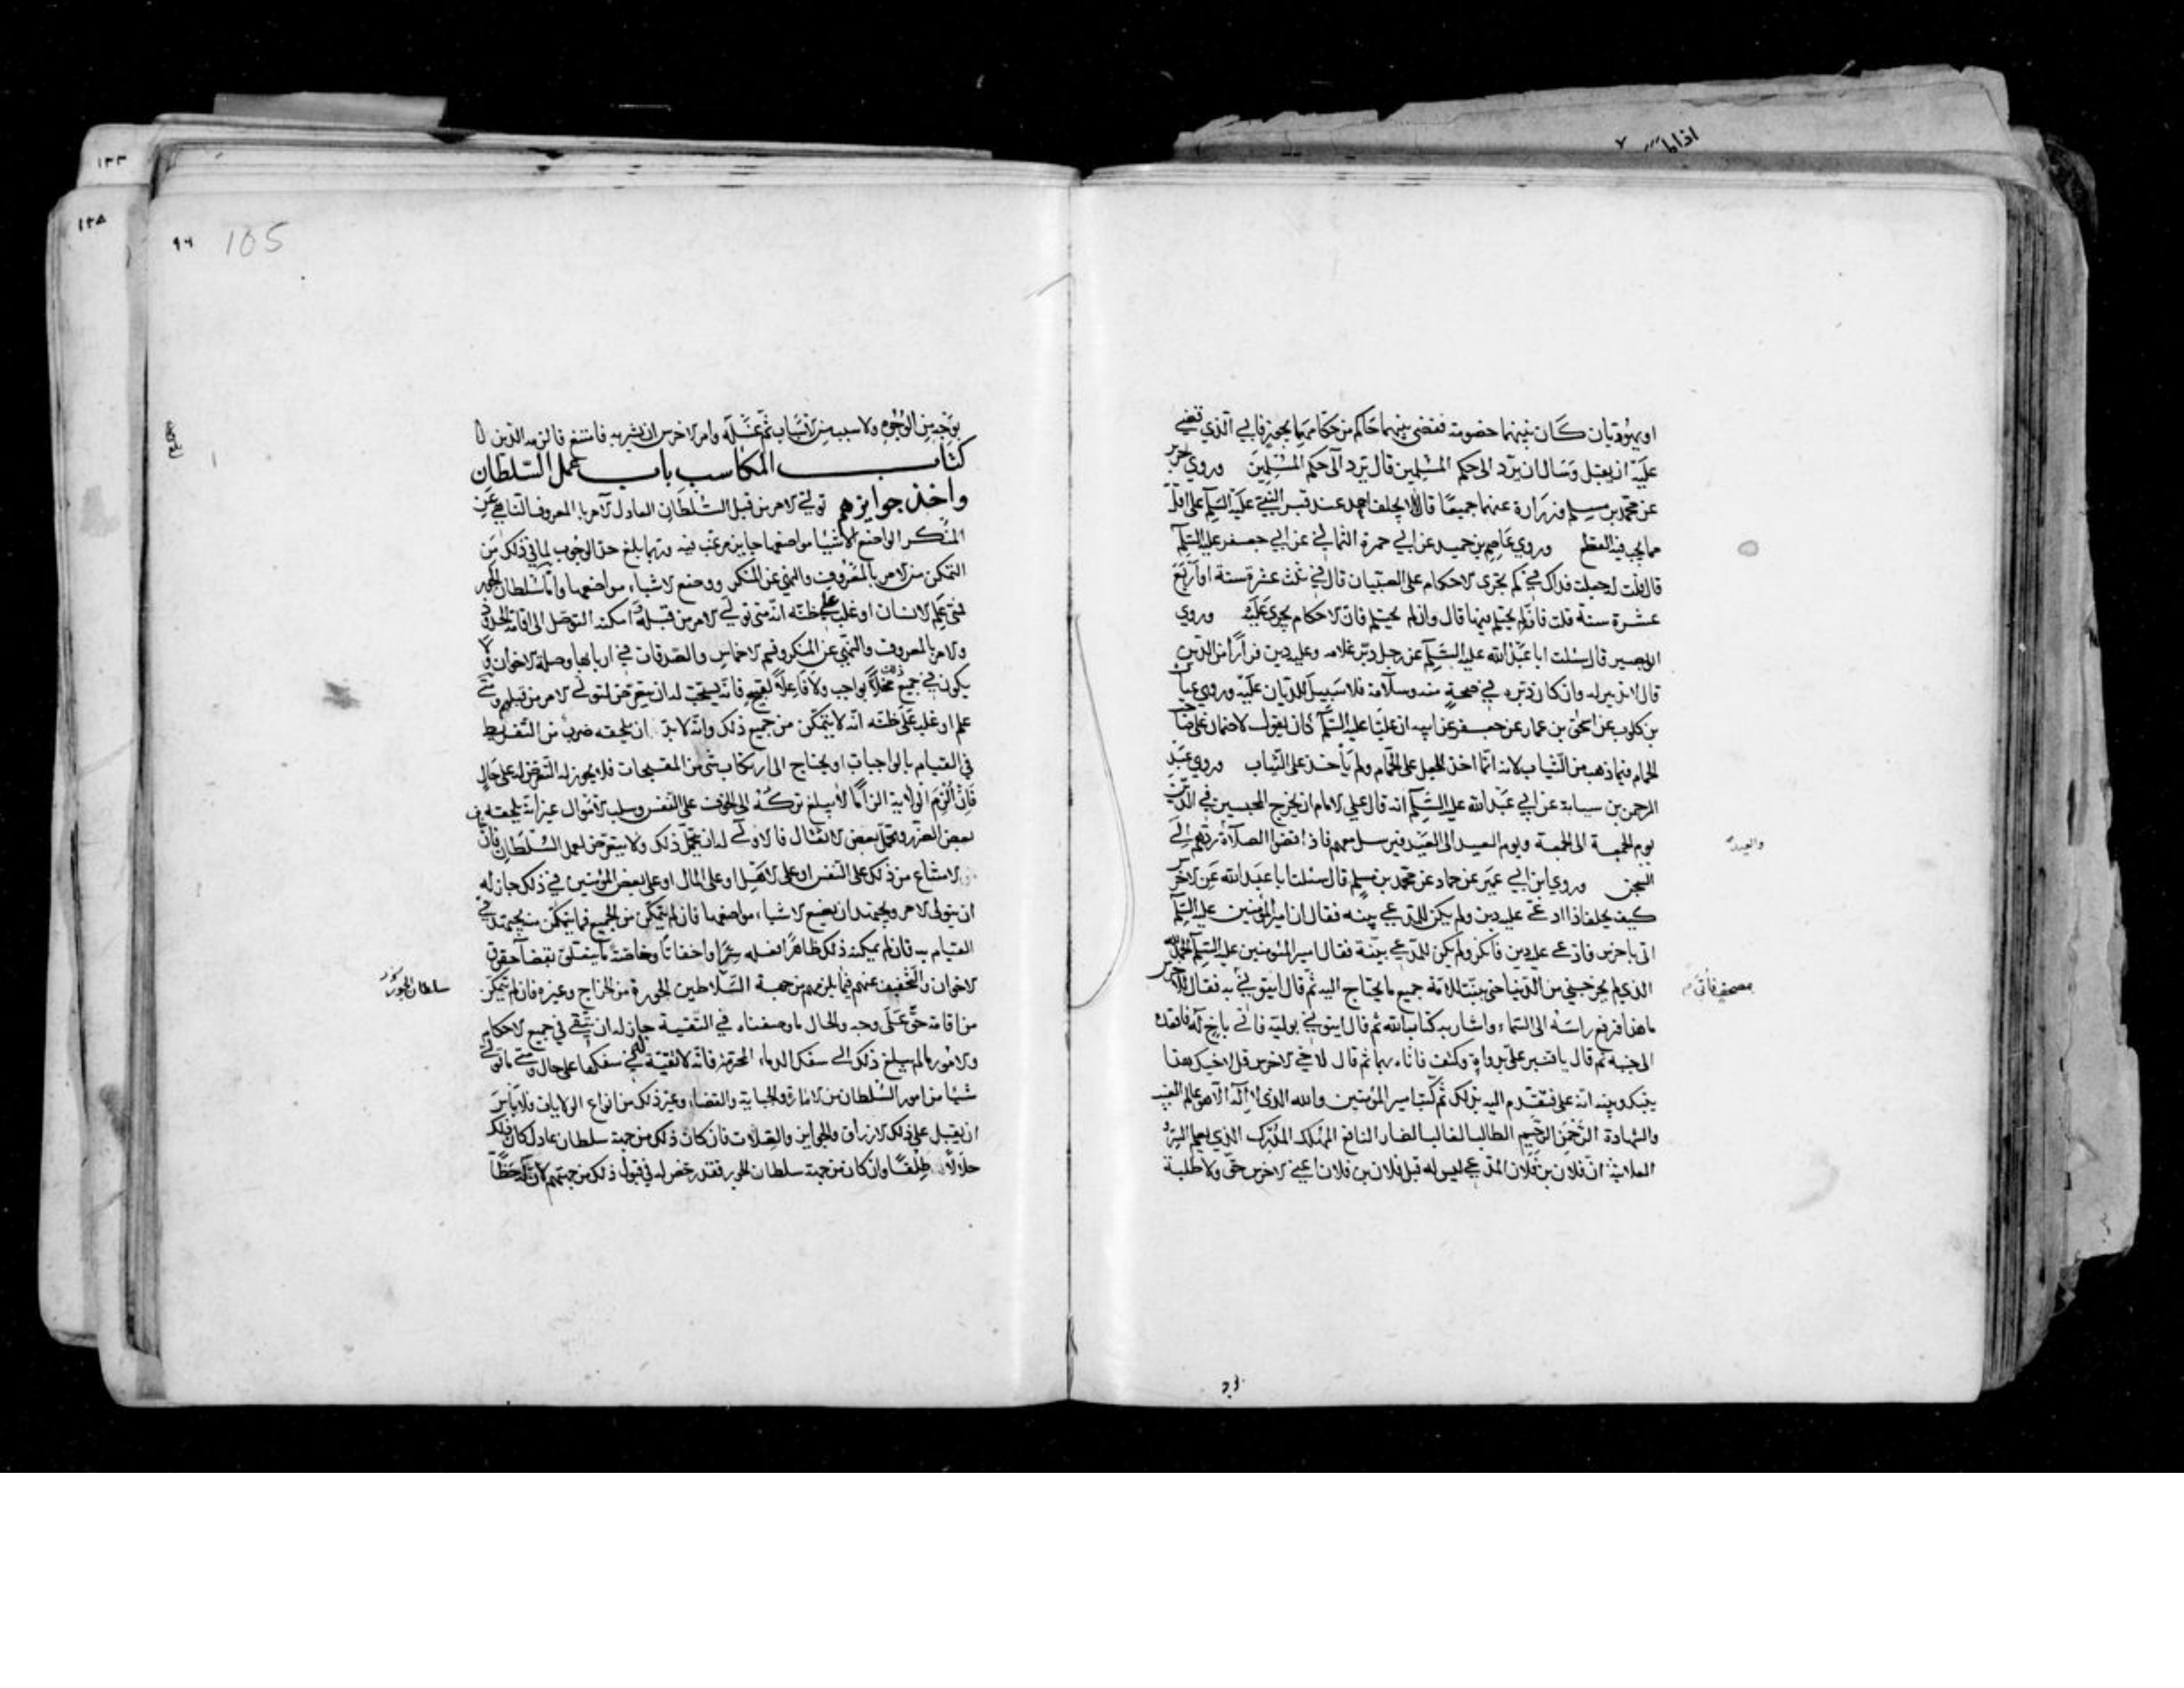 او يهوديان كان بينهما خصومة فقضى بينهما حاكم من حكامهما بجور فابى الذي قضي
عليه ان يقبل وسال ان يرد الى حكم المسلمين قال ترد الى حكم المسلمين وروي حريز
عن محمد بن مسلم وزرارة عنهما جميعا قالا لا يحلف احد عند قبر النبي عليه السلم على اقل
مما يجب فيه القطع وروي عاصم بن حميد عن ابي حمزة الثمالي عن ابي جعفر عليه السلم
قال قلت له جعلت فداك في كم تجرى الاحكام على الصبيان قال في ثلث عشرة سنة او اربع
عشرة سنة قلت فان لم يحتلم فيها قال وان لم يحتلم فان الاحكام تجري عليه وروي
ابو بصير قال سئلت ابا عبد الله عليه السلم عن رجل دبر غلامه وعليه دين فرارا من الدين
قال لا تدبير له وان كان دبره في صحة منه وسلامة فلا سبيل للديان عليه وروي غياث
بن كلوب عن اسحق بن عمار عن جعفر عن ابيه ان عليا عليه السلم كان يقول لا ضمان على صاحب
الحمام فيما ذهب من الثياب لانه انما اخذ الجعل على الحمام ولم ياخذ على الثياب وروي عبد
الرحمن بن سيابة عن ابي عبد الله عليه السلم انه قال على الامام ان يخرج المحبسين في الدين
يوم الجمعة الى الجمعة ويوم العيد الى العيد فيرسل معهم فاذا قضوا الصلاة ردهم الى
والعيد
السجن وروي ابن ابي عمير عن حماد عن محمد بن مسلم قال سئلت ابا عبد الله عن الاخرس
كيف يحلف اذا ادعي عليه دين ولم يكن للمدعي بينه فقال ان امير المؤمنين عليه السلم
اتى باخرس فادعي عليه دين فانكر ولم يكن للمدعي بينة فقال امير المؤمنين عليه السلم الحمد لله
الذي لم يخرجني من الدنيا حتى بينت للامة جميع ما يحتاج اليه ثم قال ايتوني به فقال للاخرس
بمصحف فاتي
ما هذا فرفع راسه الى السماء واشار به كتاب الله ثم قال ايتوني بوليه فاتي باخ له فاقعده
الى جنبه ثم قال يا قنبر علي بدواة وكتف فاتاه بهما ثم قال لاخي الاخرس قل لاخيك هذا
بينك وبينه انه علي فتقدم اليه بذلك ثم كتب امير المؤمنين والله الذي لا اله الا هو عالم الغيب
والشهادة الرحمن الرحيم الطالب الغالب الضار النافع المهلك المدرك الذي يعلم السر و
العلانية ان فلان بن فلان المدعي ليس له قبل فلان بن فلان اعني الاخرس حق ولا طلبة
٩٦ 105
بوجه من الوجوه ولا سبب من الاسباب ثم غسله وامر الاخرس ان يشربه فامتنع فالزمه الدين
كتاب المكاسب باب عمل السلطان
واخذ جوايزهم تولي الامر من قبل السلطان العادل الآمر بالمعروف الناهي عن
المنكر الواضع الاشيا مواضعها جايز مرغب فيه وربما بلغ حد الوجوب لما في ذلك من
التمكن من الامر بالمعروف والنهي عن المنكر ووضع الاشياء مواضعها واما سلطان الجور
فمتى علم الانسان او غلب على ظنه انه متى تولى الامر من قبله امكنه التوصل الى اقامة الحدود
والامر بالمعروف والنهي عن المنكر وقسم الاخماس والصدقات في اربابها وصلة الاخوان ولا
يكون في جميع ذلك مخلا بواجب ولا فاعلا لقبيح فانه يستحب له ان يتعرض لتولي الامر من قبلهم ومتى
علم او غلب على ظنه انه لا يتمكن من جميع ذلك وانه لا بد ان يلحقه ضرب من التفريط
في القيام بالواجبات او يحتاج الى ارتكاب شئ من المقبحات فلا يجوز له التعرض له على حال
فان الزم الولاية الزاما لا يبلغ تركه الى الخوف على النفس وسلب الاموال غير انه يلحقه
بعض الضرر وتحمل بعض الاثقال فالاولى له ان يتحمل ذلك ولا يتعرض لعمل السلطان فان
الامتناع من ذلك على النفس او على الاهل او على المال او على بعض المؤمنين في ذلك جاز له
ان يتولى الامر ويجتهد ان يضع الاشياء مواضعها فان لم يتمكن من الجميع فما يتمكن منه يجتهد في
القيام به فان لم يمكنه ذلك ظاهرا فعله سرا واخفاتا وخاصة ما يتعلق بقضا حقوق
الاخوان والتخفيف عنهم فيما يلزمهم من جهة السلاطين الجورة من الخراج وغيره فان لم يتمكن
سلطان الجور
من اقامة حق على وجه والحال ما وصفناه في التقية جاز له ان يتقي في جميع الاحكام
والامور ما لم يبلغ ذلك الى سفك الدماء المحرمة فانه لا تقية له في سفكها على حال ومتى ما تولى
شيئا من امور السلطان من الامارة والجباية والقضاء وغير ذلك من انواع الولايات فلا باس
ان يقبل على ذلك الارزاق والجوايز والصلات فان كان ذلك من جهة سلطان عادل كان ذلك
حلالا طلقا وان كان من جهة سلطان الجور فقد رخص له في قبول ذلك من جهتهم لان له حظا